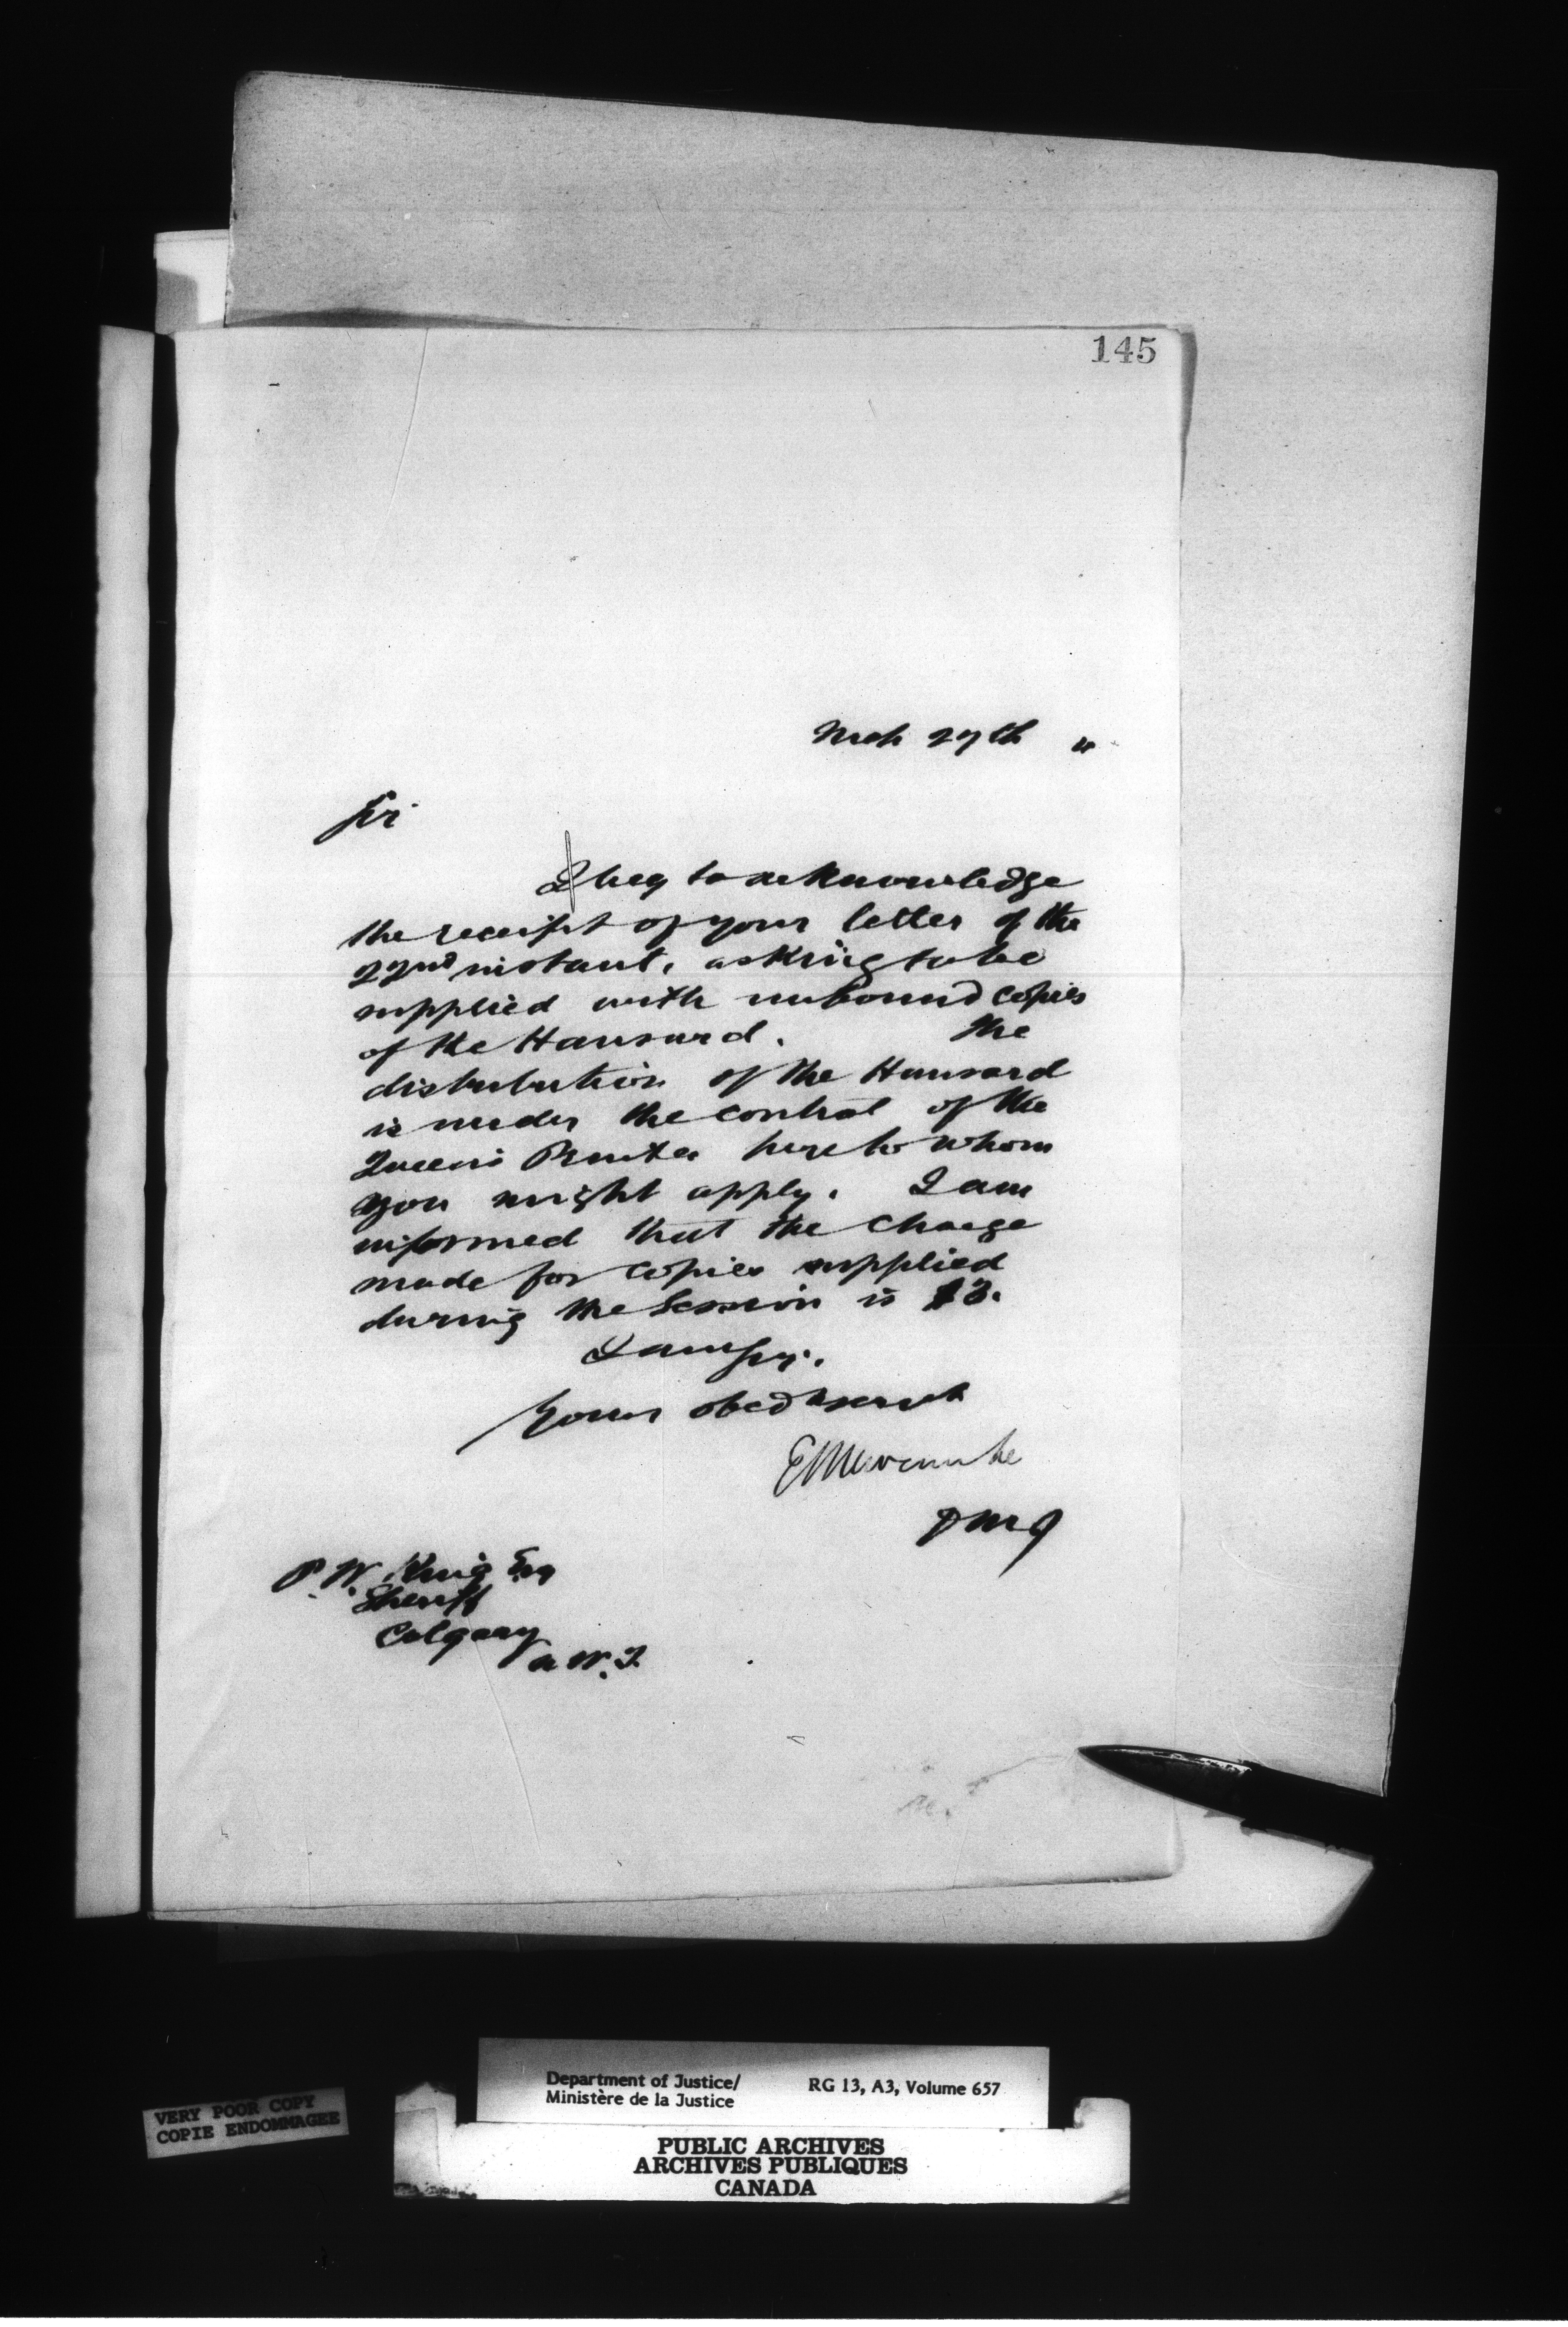 145
Mch 27th "
Sir
I beg to acknowledge
the receipt of your letter of the
22nd instant, asking to be
supplied with unbound copies
of the Hansard. The
distribution of the Hansard
is under the control of the
Queen's Printer here to whom
you might apply. I am
informed that the charge
made for copies supplied
during the Session is $3.
I am Sir,
Your obedt servt
E L Newcombe
DMJ
P. W. King Esq
Sheriff
Calgary
N. W. T.
Department of Justice/
Ministère de la Justice
RG 13, A3, Volume 657
VERY POOR COPY
COPIE ENDOMMAGEE
PUBLIC ARCHIVES
ARCHIVES PUBLIQUES
CANADA